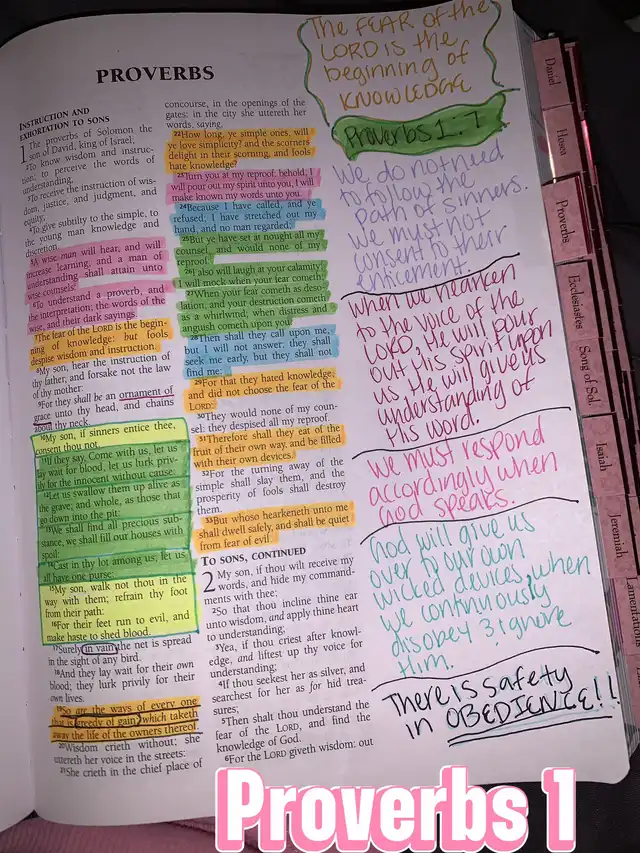 PROVERBS
INSTRUCTION AND
EXHORTATION TO SONS
1 The proverbs of Solomon the
son of David, king of Israel;
2To know wisdom and instruc-
tion; to perceive the words of
understanding;
3To receive the instruction of wis-
dom, justice, and judgment, and
equity;
4To give subtilty to the simple, to
the young man knowledge and
discretion.
5A wise man will hear, and will
increase learning; and a man of
understanding shall attain unto
wise counsels:
6To understand a proverb, and
the interpretation; the words of the
wise, and their dark sayings.
7The fear of the LORD is the begin-
ning of knowledge: but fools
despise wisdom and instruction.
8My son, hear the instruction of
thy father, and forsake not the law
of thy mother:
9For they shall be an ornament of
grace unto thy head, and chains
about thy neck.
10My son, if sinners entice thee,
consent thou not.
11If they say, Come with us, let us
lay wait for blood, let us lurk priv-
ily for the innocent without cause:
12Let us swallow them up alive as
the grave; and whole, as those that
go down into the pit:
13We shall find all precious sub-
stance, we shall fill our houses with
spoil:
14Cast in thy lot among us; let us
all have one purse:
15My son, walk not thou in the
way with them; refrain thy foot
from their path:
16For their feet run to evil, and
make haste to shed blood.
17Surely in vain the net is spread
in the sight of any bird.
18And they lay wait for their own
blood; they lurk privily for their
own lives.
19So are the ways of every one
that is greedy of gain; which taketh
away the life of the owners thereof.
20Wisdom crieth without; she
uttereth her voice in the streets:
21She crieth in the chief place of
concourse, in the openings of the
gates: in the city she uttereth her
words, saying,
22How long, ye simple ones, will
ye love simplicity? and the scorners
delight in their scorning, and fools
hate knowledge?
23Turn you at my reproof: behold, I
will pour out my spirit unto you, I will
make known my words unto you.
24Because I have called, and ye
refused; I have stretched out my
hand, and no man regarded;
25But ye have set at nought all my
counsel, and would none of my
reproof:
26I also will laugh at your calamity;
I will mock when your fear cometh;
27When your fear cometh as deso-
lation, and your destruction cometh
as a whirlwind; when distress and
anguish cometh upon you.
28Then shall they call upon me,
but I will not answer; they shall
seek me early, but they shall not
find me:
29For that they hated knowledge,
and did not choose the fear of the
LORD:
30They would none of my coun-
sel: they despised all my reproof.
31Therefore shall they eat of the
fruit of their own way, and be filled
with their own devices.
32For the turning away of the
simple shall slay them, and the
prosperity of fools shall destroy
them.
33But whoso hearkeneth unto me
shall dwell safely, and shall be quiet
from fear of evil.
TO SONS, CONTINUED
2 My son, if thou wilt receive my
words, and hide my command-
ments with thee;
2So that thou incline thine ear
unto wisdom, and apply thine heart
to understanding;
3Yea, if thou criest after knowl-
edge, and liftest up thy voice for
understanding;
4If thou seekest her as silver, and
searchest for her as for hid trea-
sures;
5Then shalt thou understand the
fear of the LORD, and find the
knowledge of God.
6For the LORD giveth wisdom: out
The FEAR of the
LORD is the
beginning of
KNOWLEDGE
Proverbs 1:7
We do not need
to follow the
path of sinners.
We must not
consent to their
enticement.
When we hearken
to the voice of the
LORD, He will pour
out His spirit upon
us. He will give us
understanding of
His word.
We must respond
accordingly when
God speaks.
God will give us
over to our own
wicked devices, when
we continuously
disobey & ignore
Him.
There is safety
in OBEDIENCE!!
Daniel
Hosea
Proverbs
Ecclesiastes
Song of Sol.
Isaiah
Jeremiah
Lamentations
Proverbs 1